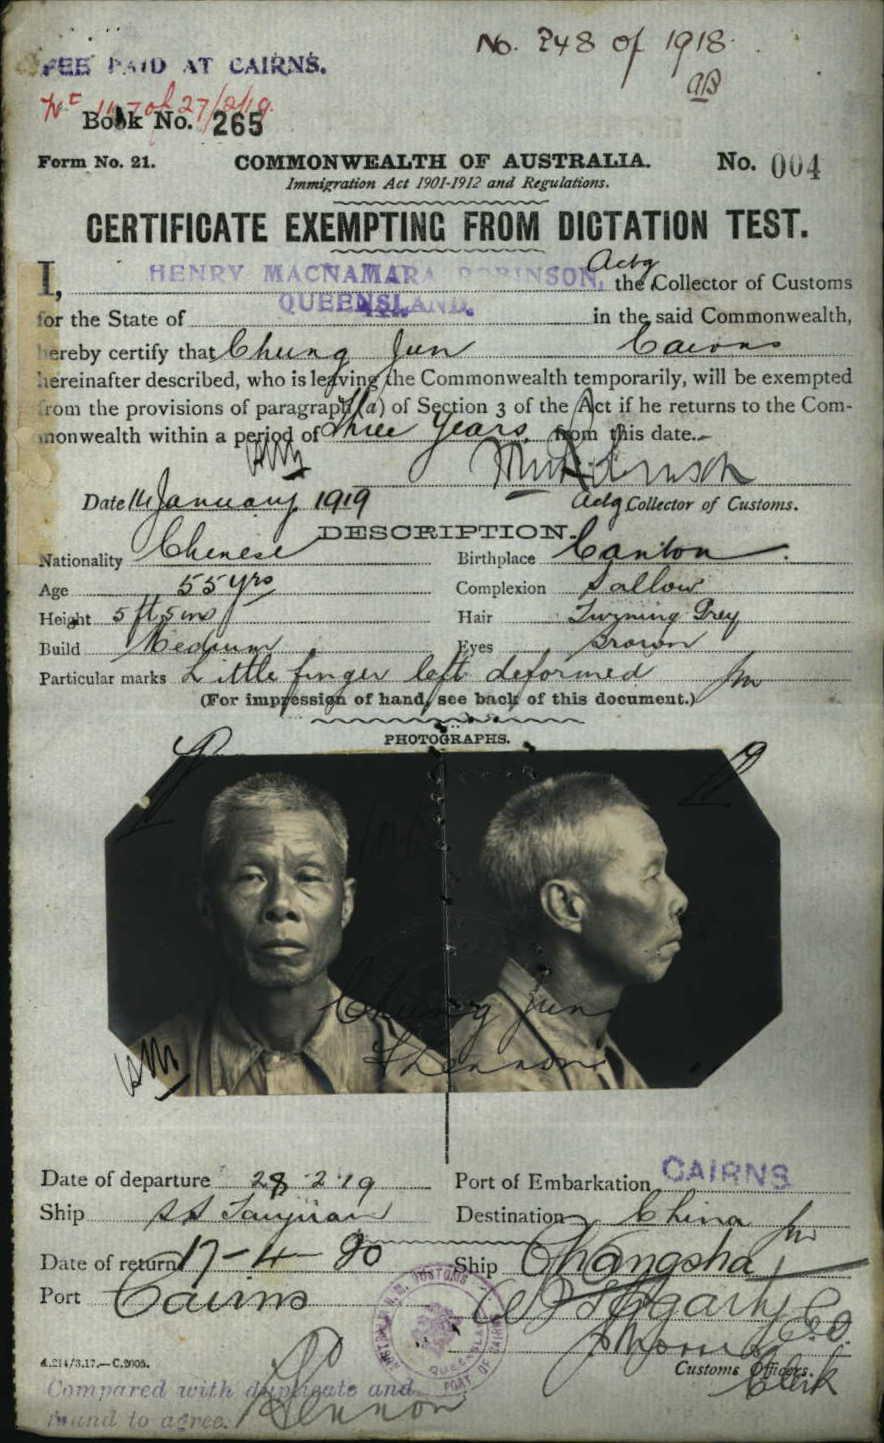 No. 248 of 1918.
FEE PAID AT CAIRNS.
27/2/19.
Book No. 265
Form No. 21. COMMONWEALTH OF AUSTRALIA. No. 004
Immigration Act 1901-1912 and Regulations.
CERTIFICATE EXEMPTING FROM DICTATION TEST.
I, HENRY MACNAMARA ROBINSON, Actg the Collector of Customs
for the State of QUEENSLAND. in the said Commonwealth,
hereby certify that Chung Jun Cairns
hereinafter described, who is leaving the Commonwealth temporarily, will be exempted
from the provisions of paragraph (a) of Section 3 of the Act if he returns to the Com-
monwealth within a period of three years from this date.
Date 14 January 1919 Actg Collector of Customs.
DESCRIPTION.
Nationality Chinese Birthplace Canton.
Age 55 yrs Complexion Sallow
Height 5 ft 5 ins Hair Turning Grey
Build Medium Eyes Brown
Particular marks Little finger left deformed
(For impression of hand, see back of this document.)
PHOTOGRAPHS.
Chung Jun
Date of departure 28 2 19 Port of Embarkation CAIRNS
Ship SS Taiyuan Destination China
Date of return 17-4-20 Ship Changsha
Port Cairns
Customs Officers.
Clerk
A.214/3.17.—C.2008.
Compared with duplicate and
found to agree.